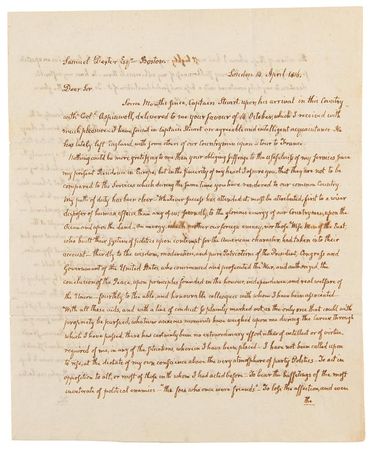 Samuel Dexter Esqr. Boston.
London 14. April 1816.
Dear Sir.
Some Months since, Captain Stuart, upon his arrival in this Country
with Coll. Aspinwall, delivered to me your favour of 14 October, which I received with
much pleasure. I have found in Captain Stuart an agreeable and intelligent acquaintance. He
has lately left England, with some others of our Countrymen upon a tour to France.
Nothing could be more gratifying to me than your obliging suffrage to the usefulness of my services since
my present Residence in Europe; but in the sincerity of my heart I assure you, that they are not to be
compared to the services which during the same time you have rendered to our common Country
My path of duty has been clear. Whatever success has attended it, must be attributed, first to a wiser
disposer of human affairs than any of us; secondly to the glorious energy of our Countrymen, upon the
Ocean and upon the Land; an energy, which neither our foreign enemy, nor those Wise Men of the East,
who built their system of politics upon contempt for the American character had taken into their
account — thirdly to the wisdom, moderation, and pure intentions of the President, Congress and
Government of the United States, who commenced and prosecuted the War, and authorized the
conclusion of the Peace, upon principles founded on the honour, independence and real welfare of
the Union — fourthly to the able, and honourable colleagues with whom I have been associated.
With all these aids, and with a line of conduct so plainly marked out as the only one that could with
propriety be pursued, whatever anxious moments have weighed upon me during the career through
which I have passed, there has certainly been no extraordinary effort either of intellect or of virtue
required of me, in any of the situations wherein I have been placed. I have not been called upon
to rise at the dictate of my own conscience above the very atmosphere of party Politics. To act in
opposition to all, or most of those with whom I had acted before — To bear the buffetings of the most
inveterate of political enemies — "the foes who once were friends" — To lose the affection, and even
the